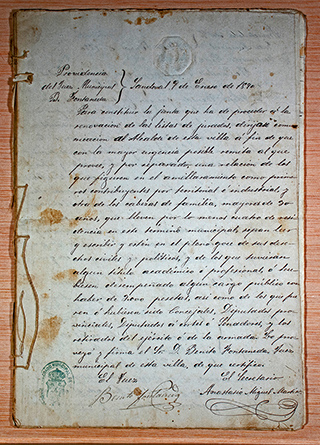 Providencia
del Juez Municipal
D. Fontaneda
Sandoval 9 de Enero de 1890
Para constituir la junta que ha de proceder á la
renovacion de las listas de jurados, dirijase comu-
nicacion al Alcalde de esta villa á fin de que
con la mayor urgencia posible remita al que
provee, y por separado, una relacion de los
que figuren en el amillaramiento como prime-
ros contribuyentes por territorial é industrial, y
otra de los cabezas de familia, mayores de
años, que lleven por lo menos cuatro de resi-
dencia en este termino municipal, sepan leer
y escribir y estén en el pleno goce de sus dere-
chos civiles y politicos, y de los que tuvieran
algun titulo académico ó profesional, ó hu-
biesen desempeñado algun cargo publico con
haber de 3000 pesetas, asi como de los que fue-
sen ó hubieren sido Concejales, Diputados pro-
vinciales, Diputados á Córtes ó Senadores, y los
retirados del ejército ó de la armada. Lo pro-
veyó y firma el Sr. D. Benito Fontaneda Juez
municipal de esta villa, de que certifico
El Juez El Secretario
Benito Fontaneda Anastasio Miguel